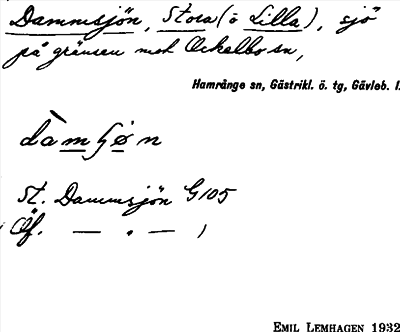 Dammsjön, Stora (ö Lilla), sjö
på gränsen mot Ockelbo sn,
Hamrånge sn, Gästrikl. ö. tg, Gävleb. l.
St. Dammsjön G105
Öf. — . — ,
EMIL LEMHAGEN 1932